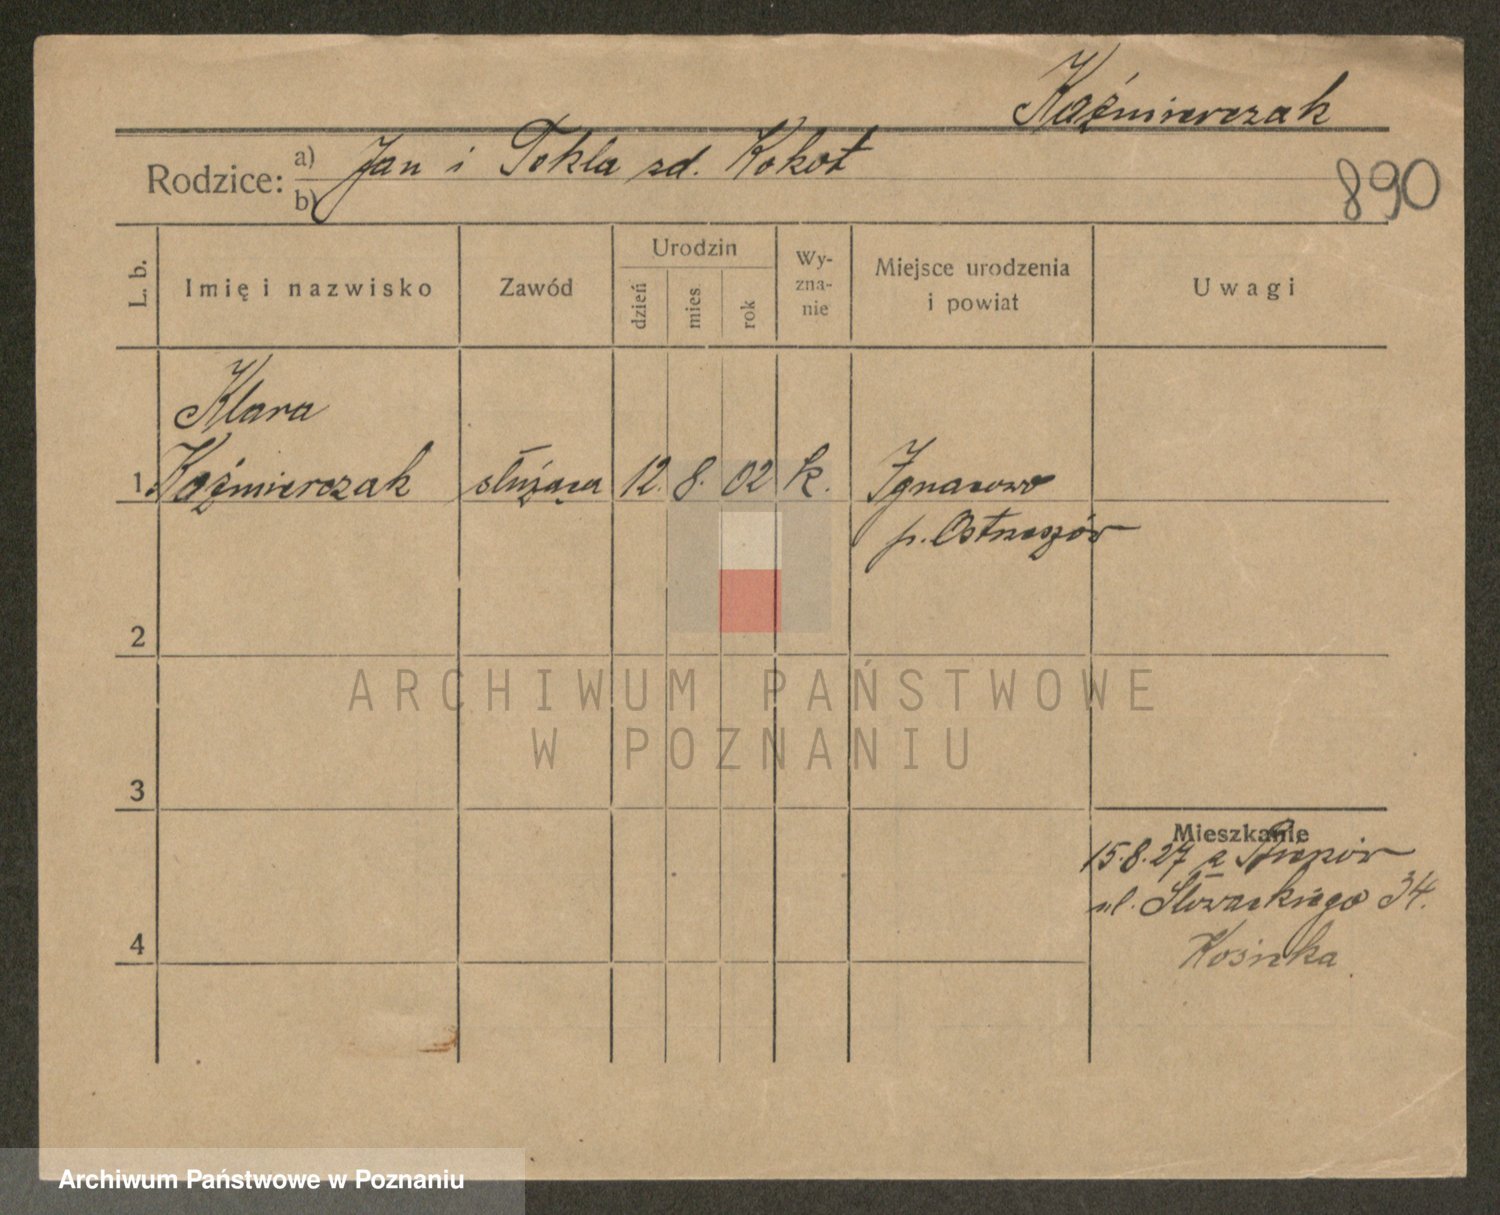 Kaźmierczak
Rodzice: a) Jan i Tekla zd. Kokot
b)
890
L. b.
Imię i nazwisko
Zawód
Urodzin
dzień
mies.
rok
Wy-
zna-
nie
Miejsce urodzenia
i powiat
Uwagi
Klara
1 Kaźmierczak służąca 12. 8. 02 k. Ignacowo
p. Ostrzeszów
2
3
4
Mieszkanie
15.8.27 z
ul. Słowackiego 34.
Kośnka
ARCHIWUM PAŃSTWOWE
W POZNANIU
Archiwum Państwowe w Poznaniu